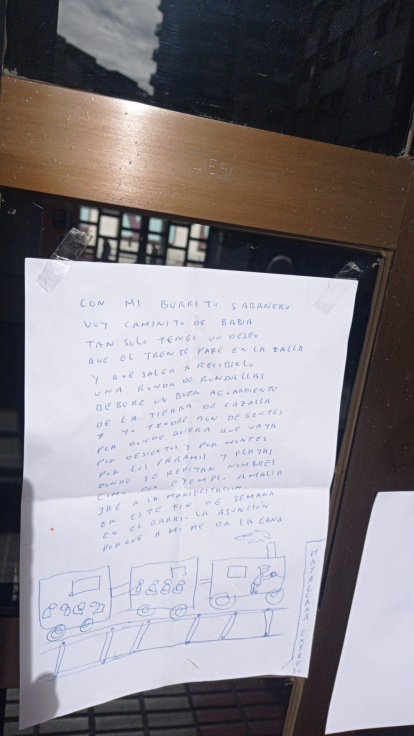 CON MI BURRITO SABANERO
VOY CAMINITO DE BABIA
TAN SOLO TENGO UN DESEO
QUE EL TREN SE PARE EN LA ZALLA
Y QUE SALGA A RECIBIRLO
UNA RONDA DE RONDALLAS
BEBERE UN BUEN AGUARDIENTE
DE LA TIERRA DE CAZALLA
Y YO TENDRE DON DE GENTES
POR DONDE QUIERA QUE VAYA
POR DESIERTOS Y POR MONTES
POR LOS PÁRAMOS Y PLAYAS
DONDE SE REPITAN NOMBRES
COMO POR EJEMPLO AMALIA
IRE A LA MANIFESTACION
EN ESTE FIN DE SEMANA
EN EL BARRIO LA ASUNCIÓN
PORQUE A MI ME DA LA GANA
MATALLANA EXPRES